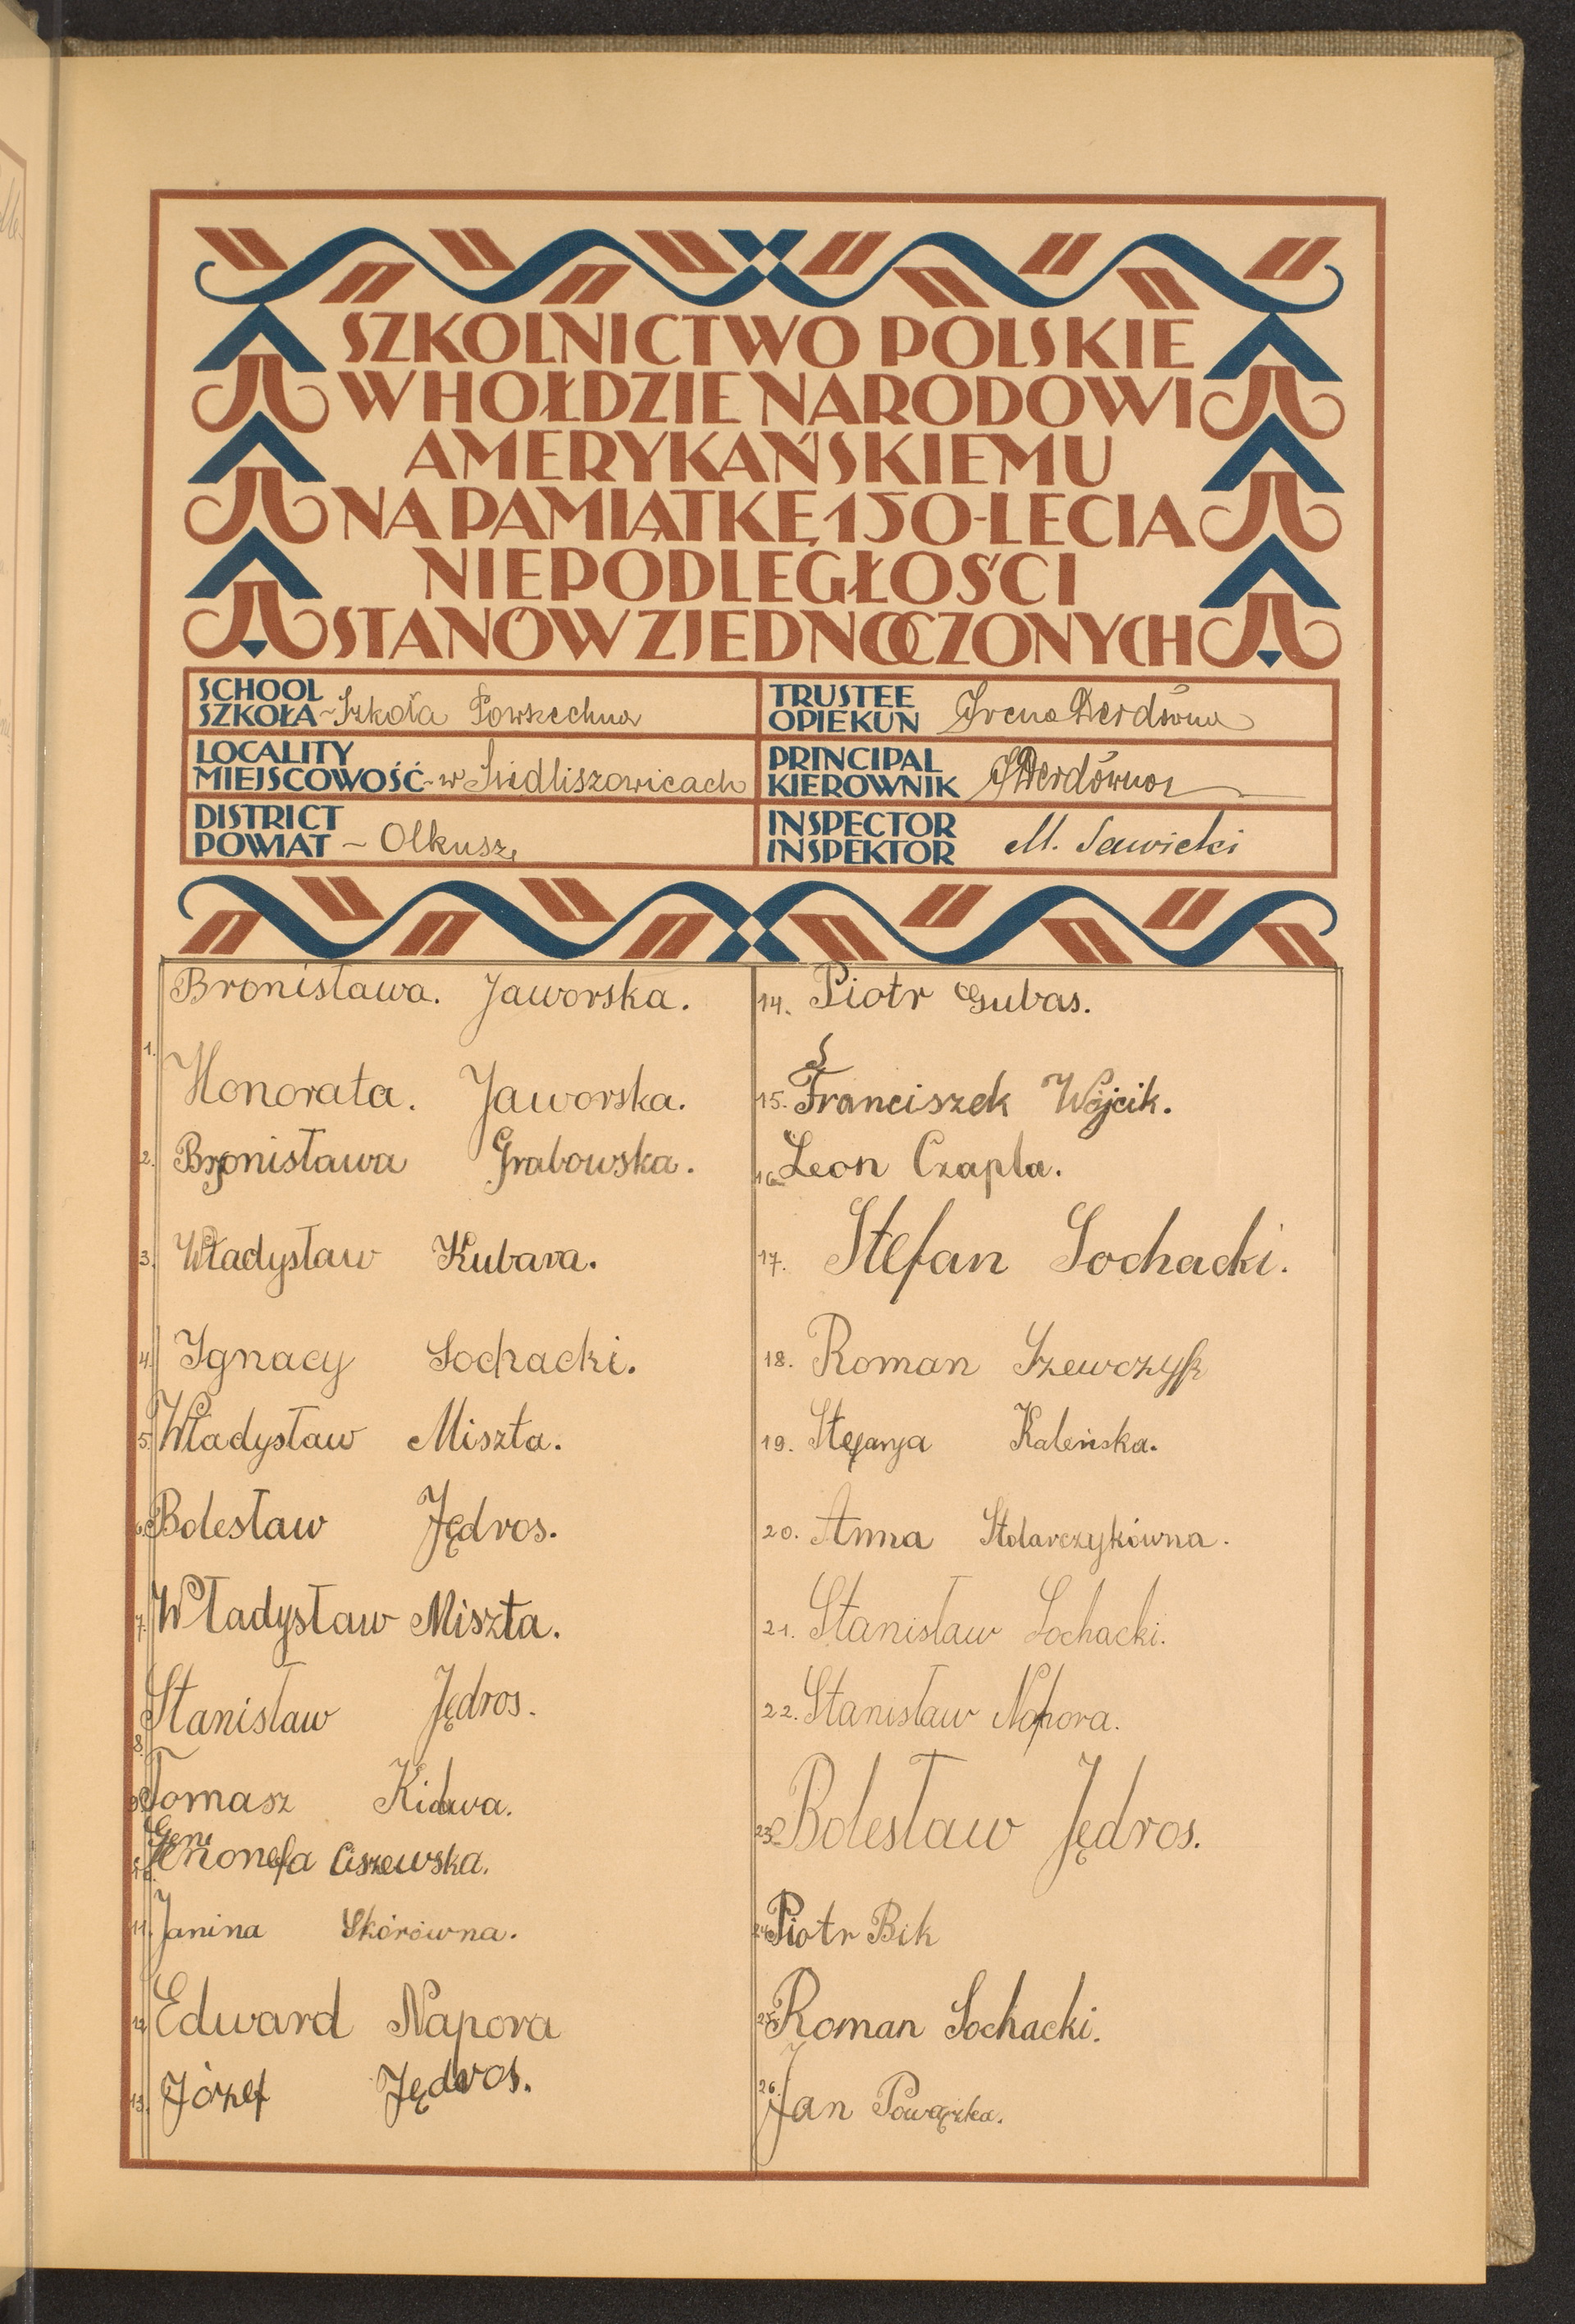 SZKOLNICTWO POLSKIE
W HOŁDZIE NARODOWI
AMERYKAŃSKIEMU
NA PAMIĄTKĘ 150-LECIA
NIEPODLEGŁOŚCI
STANÓW ZJEDNOCZONYCH
SCHOOL
SZKOŁA - Szkoła Powszechna
LOCALITY
MIEJSCOWOŚĆ - w Siedliszowicach
DISTRICT
POWIAT - Olkusz,
TRUSTEE
OPIEKUN Irena Derdówna
PRINCIPAL
KIEROWNIK IDerdówna
INSPECTOR
INSPEKTOR M. Sawicki
Bronisława. Jaworska.
1. Honorata. Jaworska.
2. Bronisława Grabowska.
3. Władysław Kubara.
4. Ignacy Sochacki.
5. Władysław Miszta.
6. Bolesław Jędros.
7. Władysław Miszta.
8. Stanisław Jędros.
9. Tomasz Kidawa.
10. Genonefa Ciszewska.
11. Janina Skórówna.
12. Edward Napora
13. Józef Jędros.
14. Piotr Gubas.
15. Franciszek Wójcik.
16. Leon Czapla.
17. Stefan Sochacki.
18. Roman Szewczyk
19. Stefanja Kaleńska.
20. Anna Stolarczykówna.
21. Stanisław Sochacki.
22. Stanisław Napora.
23. Bolesław Jędros.
24. Piotr Bik
25. Roman Sochacki.
26. Jan Powązka.